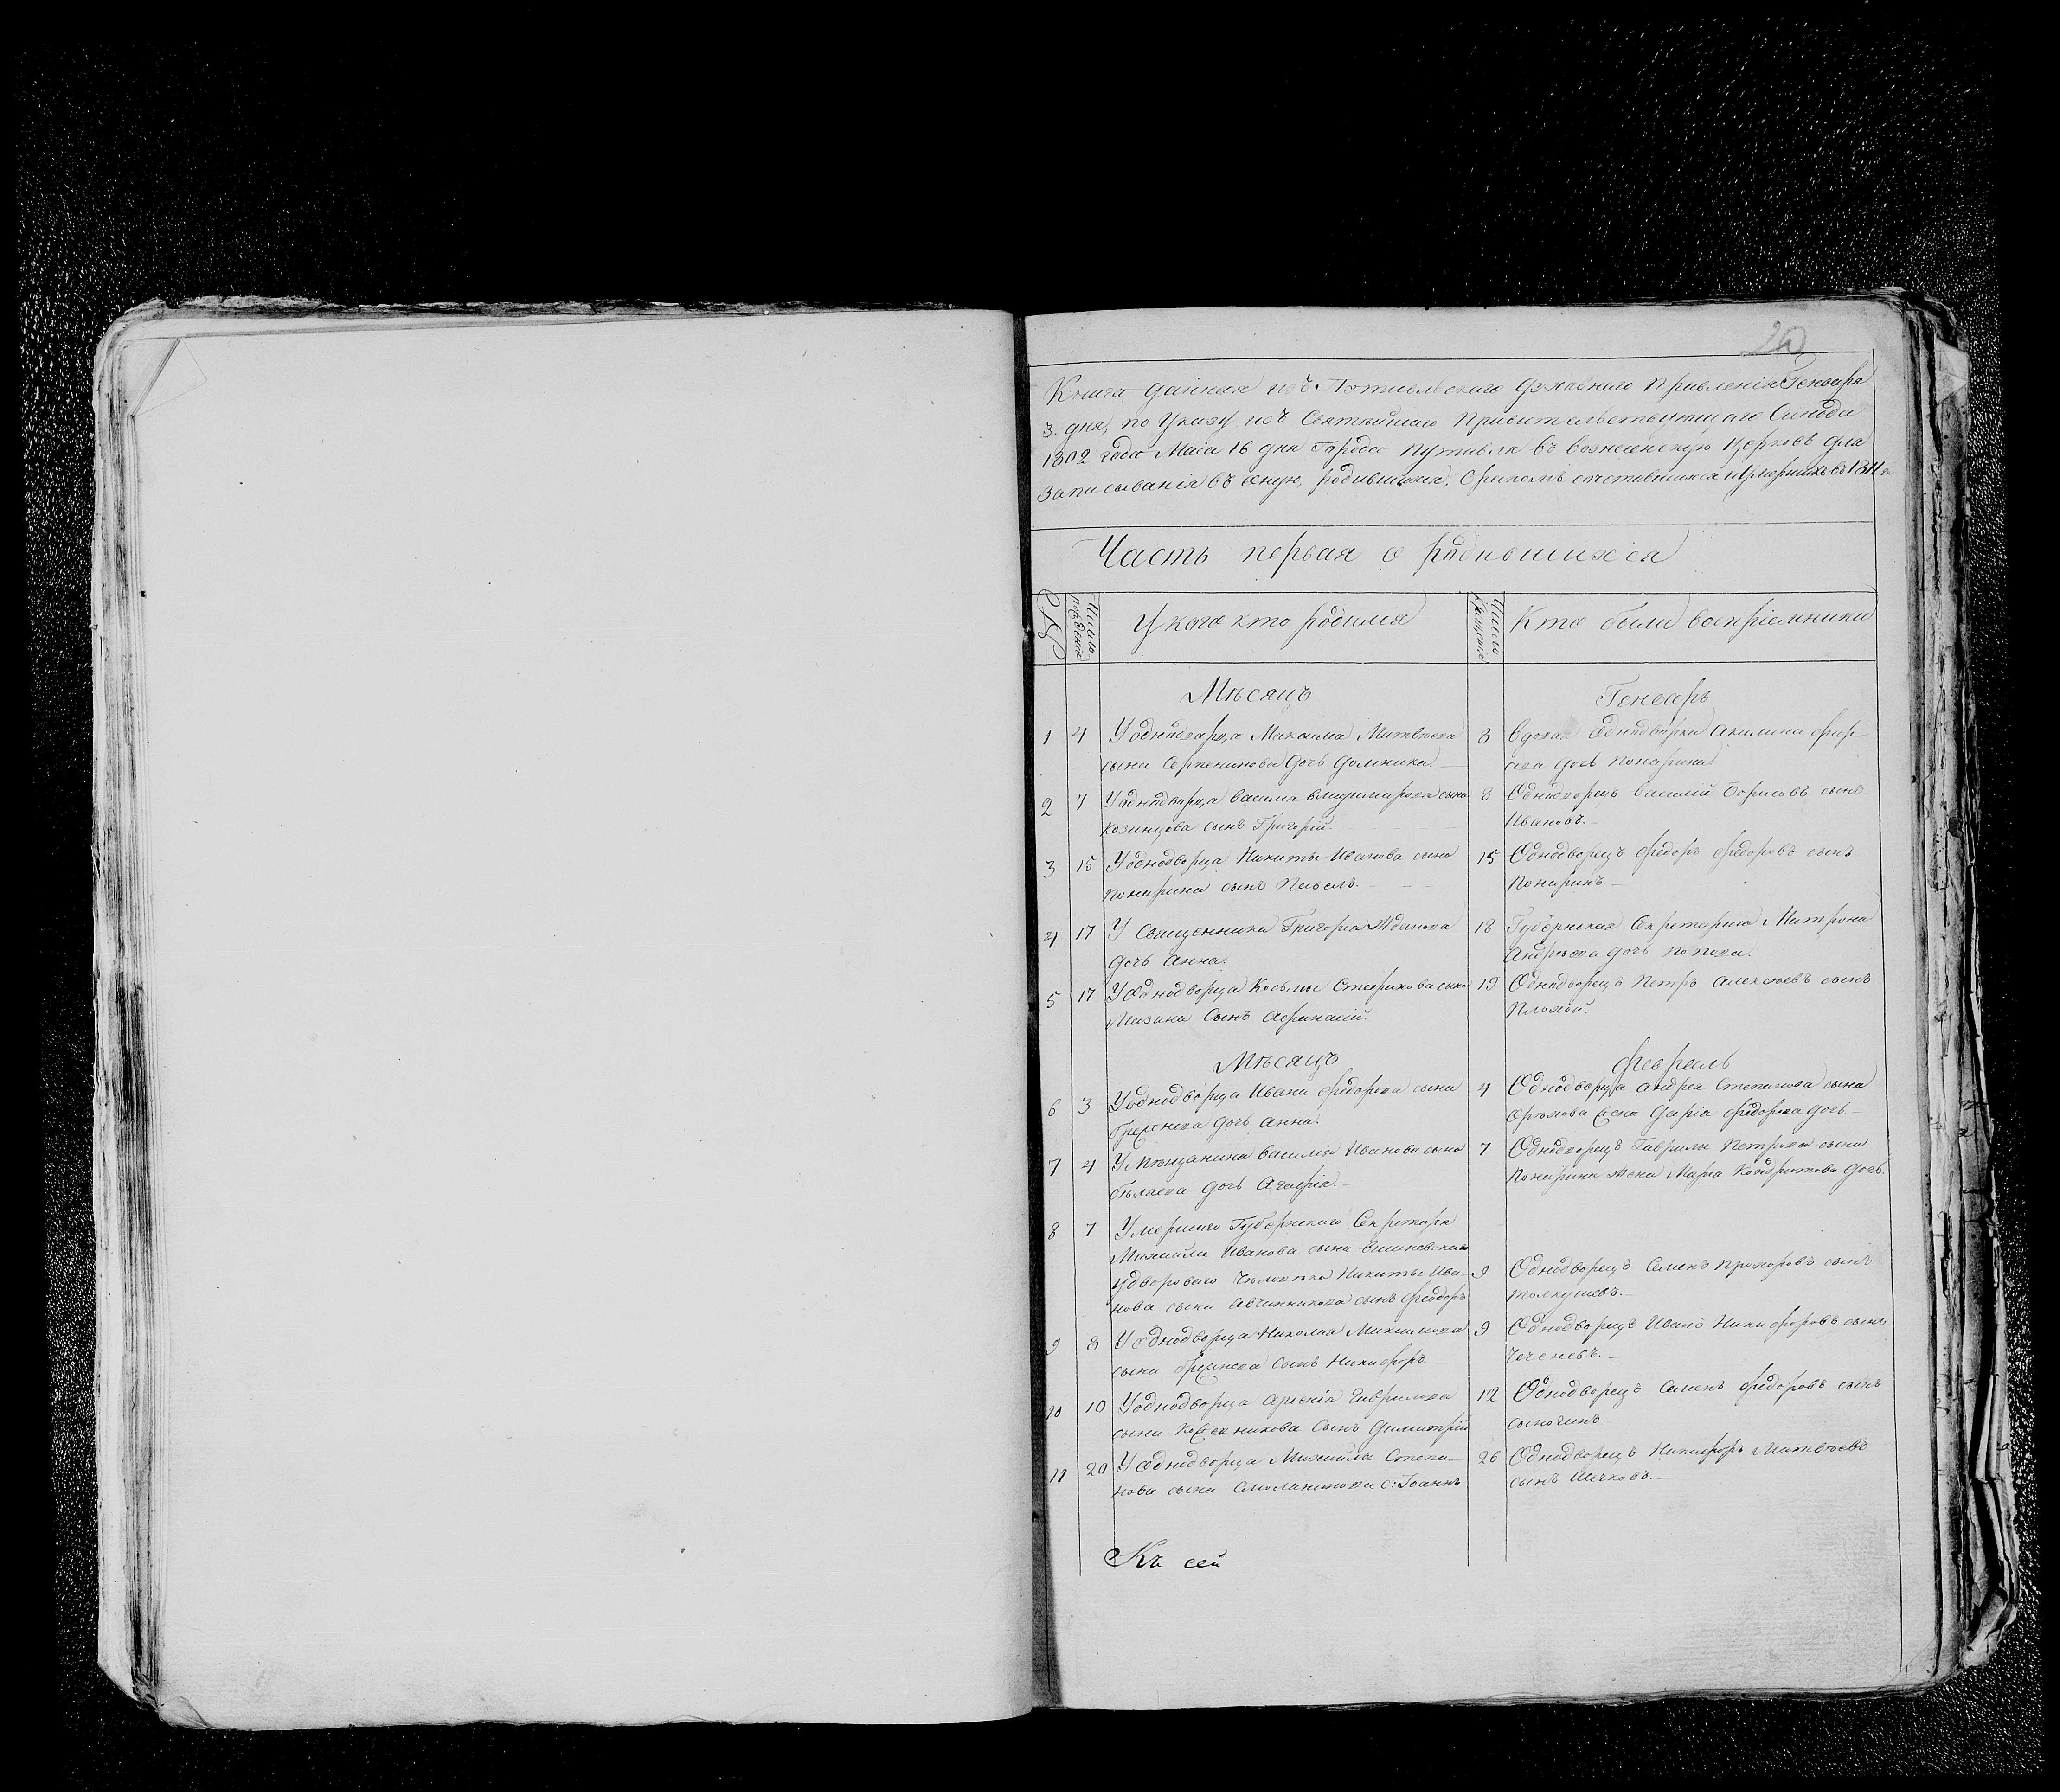 20
Книга данная изъ Путивльскаго Духовнаго Правленія Генваря
3. дня, по Указу изъ Святѣйшаго Правительствующаго Синода
1802 года Маіа 16 дня Города Путивля въ вознесенскую Церковь для
Записыванія въ оную, родившихся, бракомъ сочетавшихся и умершихъ въ 1811
Часть первая о родившихся
Число рожденія
У кого кто родился
Число крещенія
Кто были воспріемники
Мѣсяцъ Генварь
1 4 У однодворца Максима Матвѣева 8 вдова однодворка Акилина
сына Серпенинова дочь Домника. дочь Понарина.
2 7 У однодворца василия владимирова сына 8 Однодворецъ василий Борисовъ сынъ
козинцова сынъ Григорій. Ивановъ.
3 15 У однодворца Никиты Иванова сына 15 Однодворецъ федоръ федоровъ сынъ
Понарина сынъ Павелъ. Понаринъ
4 17 У Священника Григория Жданова 18 Губернская Секретарша Матрона
дочь Анна. Андрѣева дочь Попова.
5 17 У Однодворца Косьмы Стефанова сына 19 Однодворецъ Петръ Алексѣевъ сынъ
Мазина Сынъ Афанасій. Плохой.
Мѣсяцъ февраль
6 3 У однодворца Ивана федорова сына 4 Однодворца Андрея Степанова сына
дочь Анна. жена Дарія федорова дочь
7 4 У Мѣщанина василія Иванова сына 7 Однодворецъ Гаврилы Петрова сына
бѣляева дочь Агафія. Понарина жена Марѳа Кондратова дочь.
8 7 Умершаго Губернскаго Секретаря
Михайла Иванова сына
удвороваго Человѣка Никиты Ива- 9 Однодворецъ Семенъ прохоровъ сынъ
нова сына Авчинникова сынъ феодоръ толкушевъ.
9 8 У Однодворца Николая Максимова 9 Однодворецъ Иванъ Никифоровъ сынъ
сына Сынъ Никифоръ Чеченевъ.
10 10 У однодворца Арсенія Гаврилова 12 Однодворецъ Семенъ федоровъ сынъ
сына Сынъ Димитрій
11 20 У однодворца Михайла Степа- 26 Однодворецъ Никифоръ Матвѣевъ
нова сына с: Іоаннъ сынъ Шечковъ.
Къ сей